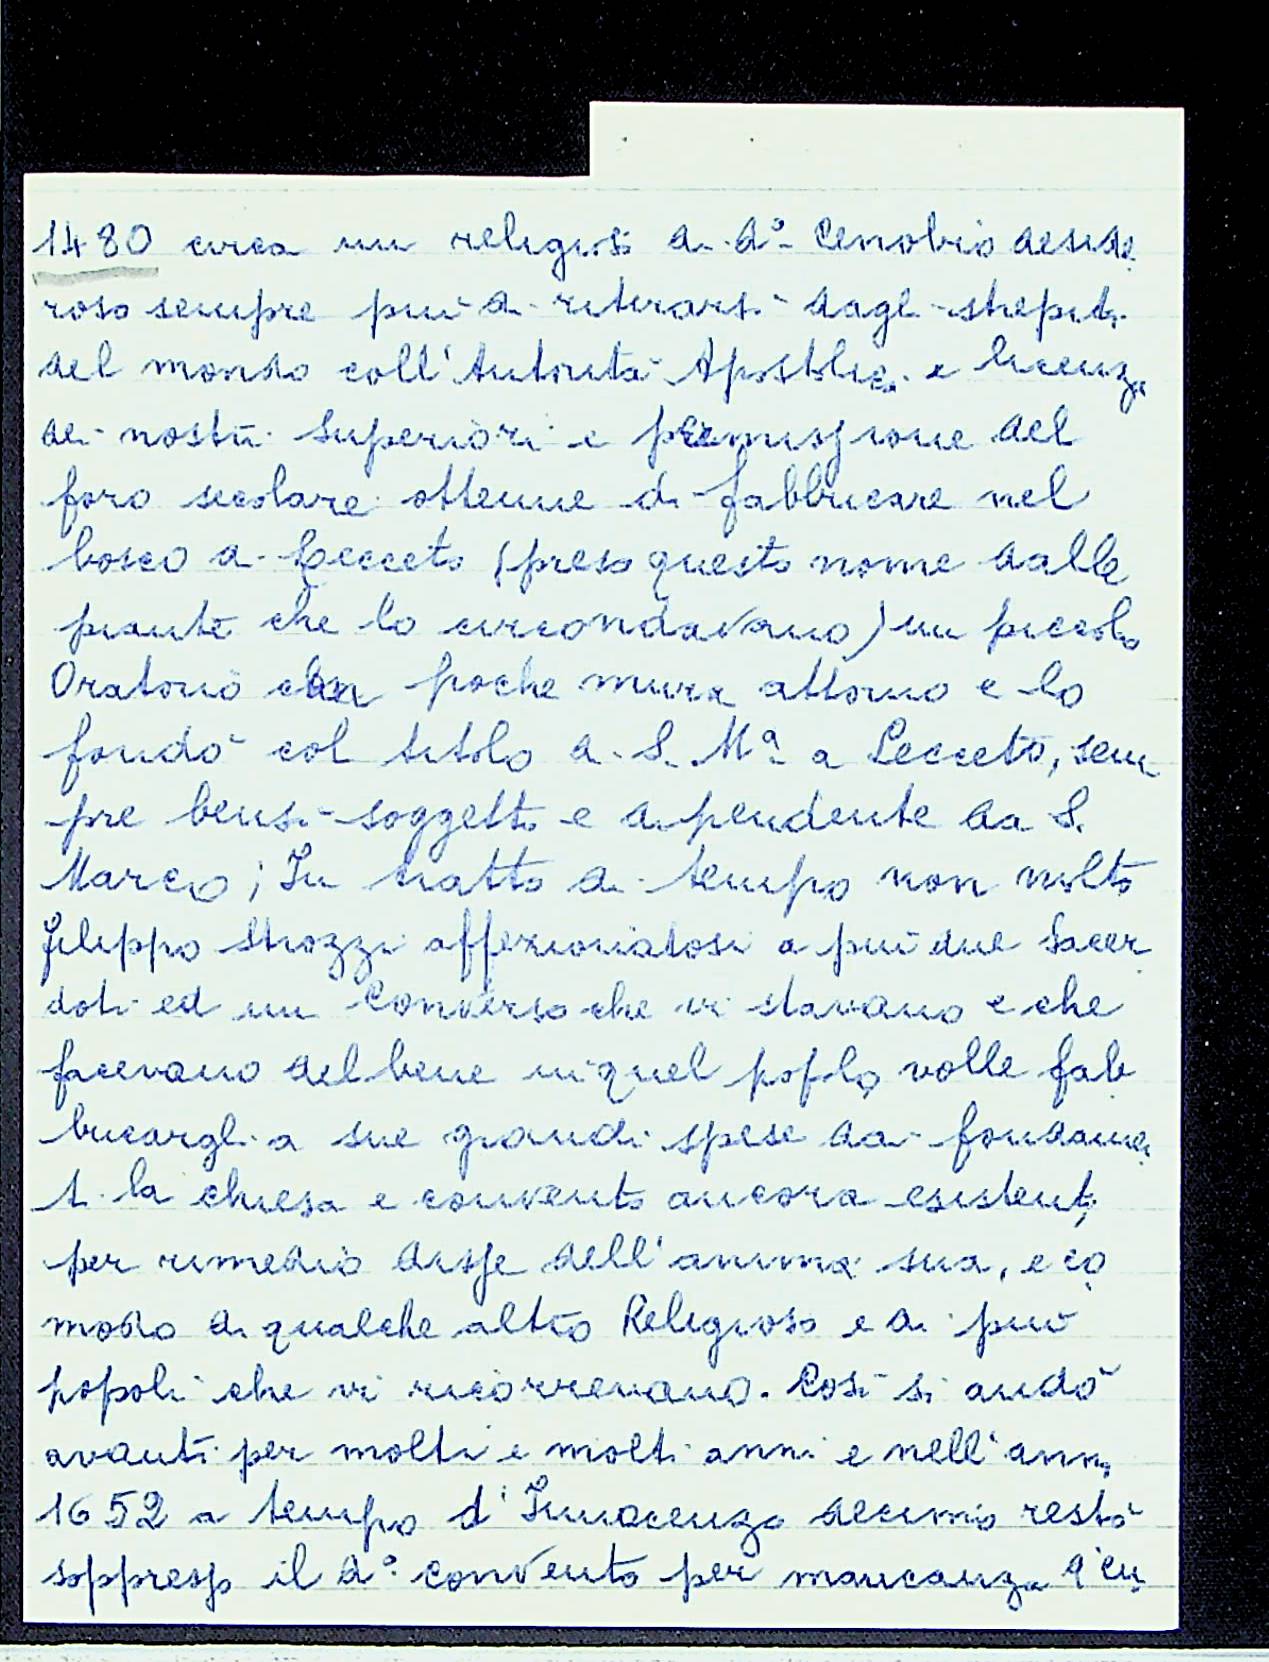 1480 circa un religioso di d.º Cenobio deside
roso sempre più di ritirarsi dagli strepiti
del mondo coll'Autorità Apostolica e licenza
dei nostri Superiori e permissione del
foro secolare ottenne di fabbricare nel
bosco di Lecceto (preso questo nome dalle
piante che lo circondavano) un piccolo
Oratorio con poche mura attorno e lo
fondò col titolo di S. Mª a Lecceto, sem
pre bensì soggetto e dipendente da S.
Marco; In tratto di tempo non molto
Filippo Strozzi affezionatosi a più due Sacer
doti ed un Converso che vi stavano e che
facevano del bene in quel popolo, volle fab
bricargli a sue grandi spese dai fondamen
ti la chiesa e convento ancora esistenti,
per rimedio disse dell'anima sua, e co
modo di qualche altro Religioso e di più
popoli che vi ricorrevano. Così si andò
avanti per molti e molti anni e nell'anno
1652 a tempo d'Innocenzo decimo restò
soppresso il d.º convento per mancanza d'en